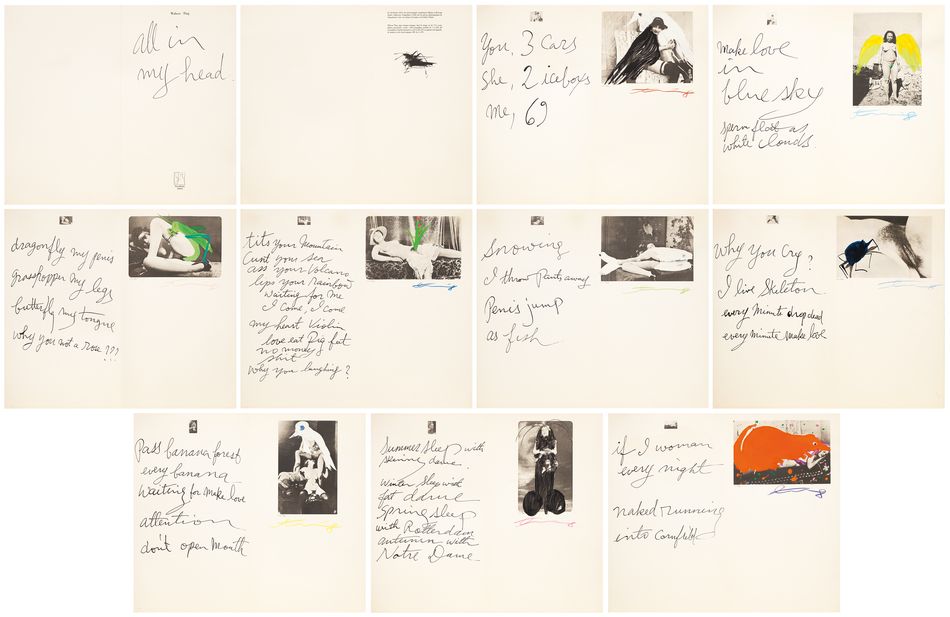 Walasse Ting
all in
my head.
You, 3 cars
She, 2 iceboxs
Me, 69
Make love
in
blue sky
sperm float as
white clouds.
dragonfly my penis
grasshopper my legs
butterfly my tongue
why you not a rose ???
tits your Mountain
Cunt your sea
ass your Volcano
lips your rainbow
Waiting for Me
I Come, I Come
my heart Violin
love eat Pig fat
no money
shit
why you laughing?
Snowing
I throw Pants away
Penis jump
as fish
Why You Cry?
I live Skeleton
every Minute drop dead
every Minute Make love
Pass banana forest
every banana
Waiting for Make love
attention
don't open Mouth
Summer sleep with
skinny dame.
Winter Sleep with
fat dame
Spring sleep
with Rotterdam
autumn with
Notre Dame
if I woman
every night
naked running
into Cornfield